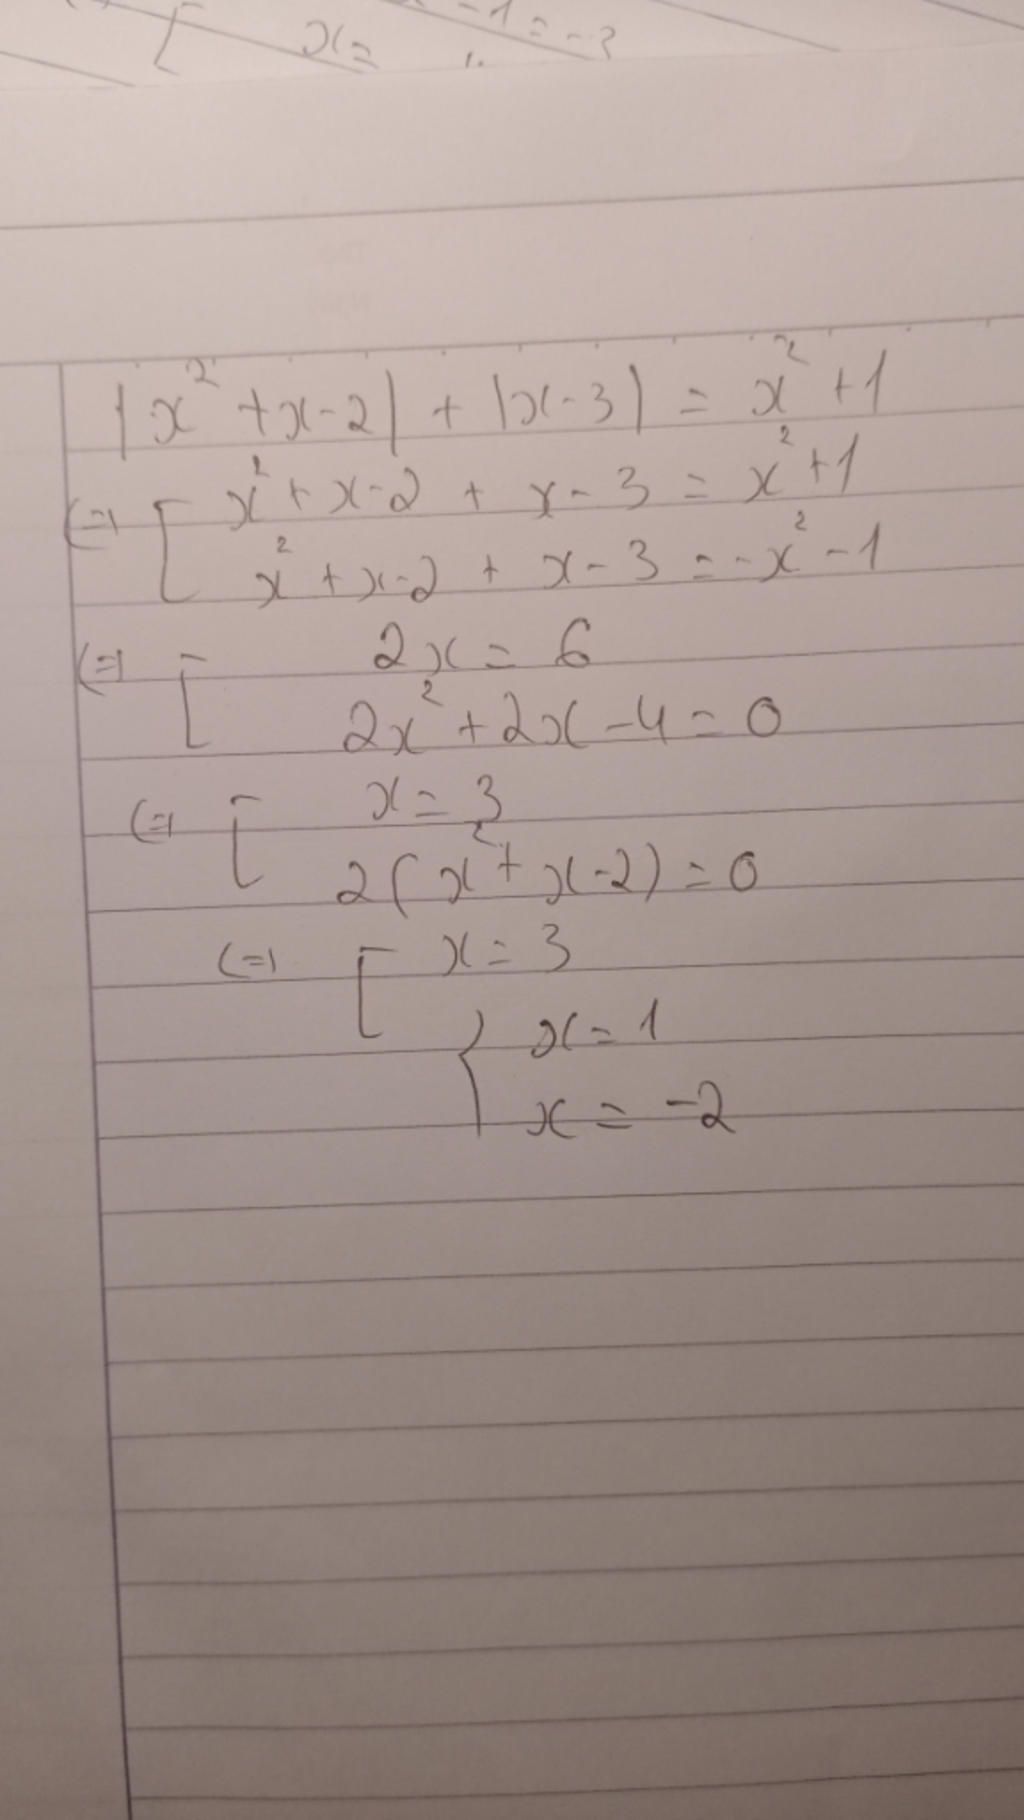 x = -1 = -3
|x² + x - 2| + |x - 3| = x² + 1
(=) [ x² + x - 2 + x - 3 = x² + 1
x² + x - 2 + x - 3 = -x² - 1
(=) [ 2x = 6
2x² + 2x - 4 = 0
(=) [ x = 3
2(x² + x - 2) = 0
(=) [ x = 3
{ x = 1
x = -2